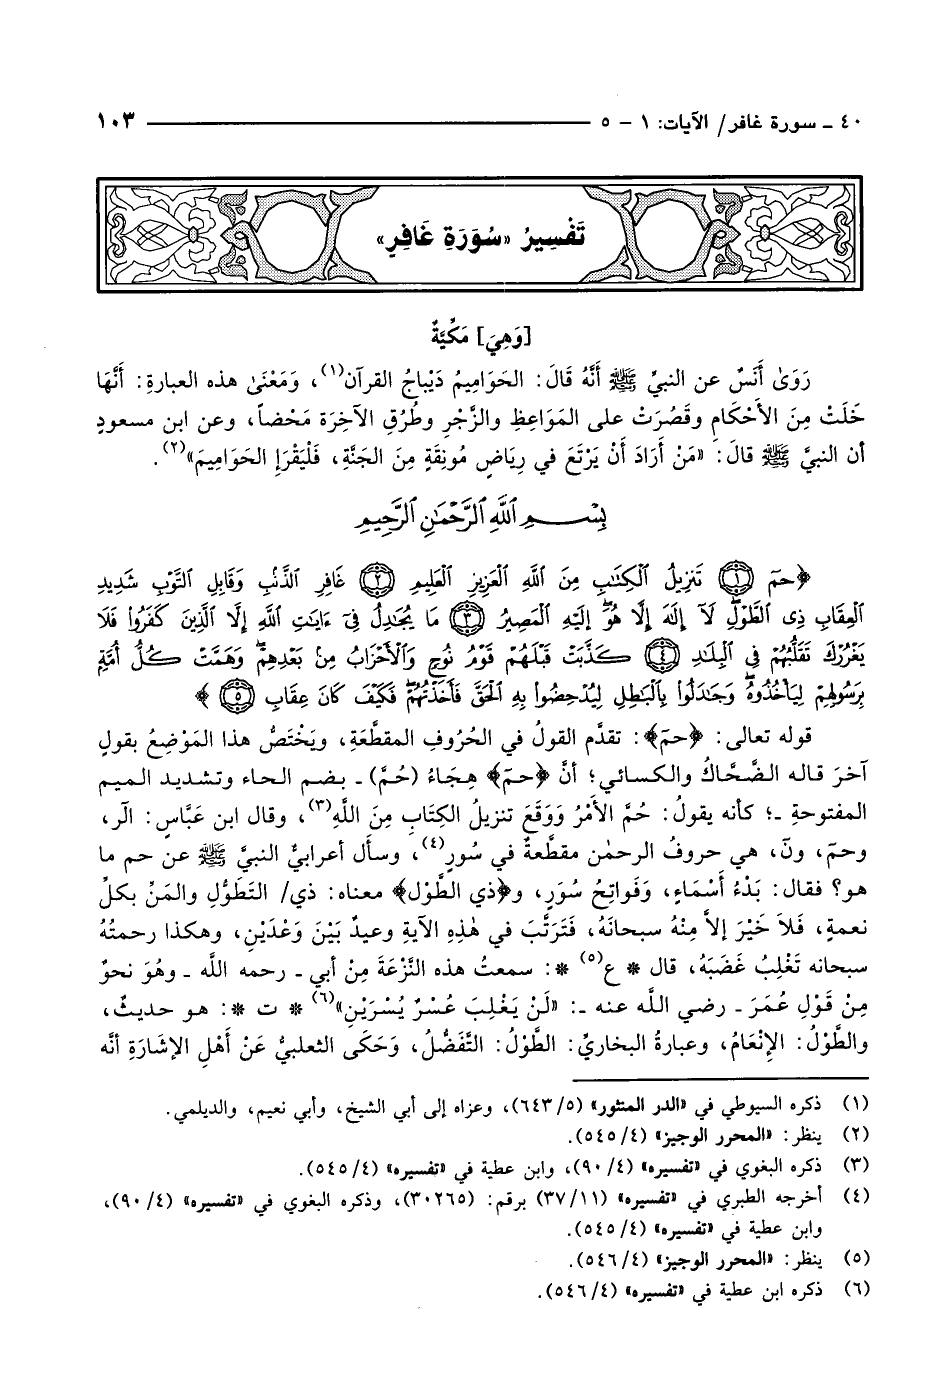 ٤٠ ـ سورة غافر/ الآيات: ١ - ٥ ١٠٣
تَفْسِيرُ «سُورَةِ غَافِرٍ»
[وَهِيَ] مَكِّيَّةٌ
رَوَىٰ أَنَسٌ عن النبيِّ ﷺ أَنَّهُ قَالَ: الحَوَامِيمُ دَيْبَاجُ القرآن(١)، وَمَعْنَىٰ هذه العبارةِ: أَنَّهَا
خَلَتْ مِنَ الأَحْكَامِ وقَصُرَتْ على المَوَاعِظِ والزَّجْرِ وطُرُقِ الآخِرَة مَحْضاً، وعن ابن مسعودٍ
أن النبيَّ ﷺ قالَ: «مَنْ أَرَادَ أَنْ يَرْتَعَ في رِيَاضٍ مُونِقَةٍ مِنَ الجَنَّةِ، فَلْيَقْرَإِ الحَوَامِيمَ»(٢).
بِسْمِ ٱللَّهِ ٱلرَّحْمَٰنِ ٱلرَّحِيمِ
﴿حمٓ ﴿١﴾ تَنزِيلُ ٱلْكِتَٰبِ مِنَ ٱللَّهِ ٱلْعَزِيزِ ٱلْعَلِيمِ ﴿٢﴾ غَافِرِ ٱلذَّنۢبِ وَقَابِلِ ٱلتَّوْبِ شَدِيدِ
ٱلْعِقَابِ ذِى ٱلطَّوْلِۖ لَآ إِلَٰهَ إِلَّا هُوَۖ إِلَيْهِ ٱلْمَصِيرُ ﴿٣﴾ مَا يُجَٰدِلُ فِىٓ ءَايَٰتِ ٱللَّهِ إِلَّا ٱلَّذِينَ كَفَرُوا۟ فَلَا
يَغْرُرْكَ تَقَلُّبُهُمْ فِى ٱلْبِلَٰدِ ﴿٤﴾ كَذَّبَتْ قَبْلَهُمْ قَوْمُ نُوحٍ وَٱلْأَحْزَابُ مِنۢ بَعْدِهِمْۖ وَهَمَّتْ كُلُّ أُمَّةٍۭ
بِرَسُولِهِمْ لِيَأْخُذُوهُۖ وَجَٰدَلُوا۟ بِٱلْبَٰطِلِ لِيُدْحِضُوا۟ بِهِ ٱلْحَقَّ فَأَخَذْتُهُمْۖ فَكَيْفَ كَانَ عِقَابِ ﴿٥﴾ ﴾
قوله تعالى: ﴿حمٓ﴾: تقدَّم القولُ في الحُرُوفِ المقطَّعةِ، ويَخْتَصُّ هذا المَوْضِعُ بقولٍ
آخرَ قاله الضَّحَّاكُ والكسائي؛ أنَّ ﴿حمٓ﴾ هِجَاءُ (حُمَّ) ـ بضم الحاء وتشديد الميم
المفتوحةِ ـ؛ كأنه يقولُ: حُمَّ الأَمْرُ وَوَقَعَ تنزيلُ الكِتَابِ مِنَ اللَّهِ(٣)، وقال ابن عَبَّاسٍ: الٓر،
وحمٓ، ونٓ، هي حروفُ الرحمٰن مقطَّعةٌ في سُورٍ(٤)، وسأل أعرابيٌّ النبيَّ ﷺ عن حم ما
هو؟ فقال: بَدْءُ أَسْمَاءٍ، وَفَواتِحُ سُوَرٍ، و﴿ذي الطَّوْلِ﴾ معناه: ذي/ التَطوُّلِ والمَنِّ بكلِّ
نعمةٍ، فَلاَ خَيْرَ إلاَّ مِنْهُ سبحانَهُ، فَتَرَتَّبَ في هٰذِهِ الآيةِ وعيدٌ بَيْنَ وَعْدَيْنِ، وهكذا رحمتُهُ
سبحانه تَغْلِبُ غَضَبَهُ، قال * ع(٥) *: سمعتُ هذه النَّزْعَةَ مِنْ أبي ـ رحمه اللَّه ـ وهُوَ نحوٌ
مِنْ قَوْلِ عُمَرَ ـ رضي اللَّه عنه ـ: «لَنْ يَغْلِبَ عُسْرٌ يُسْرَيْنِ»(٦) * ت *: هو حديثٌ،
والطَّوْلُ: الإِنْعَامُ، وعبارةُ البخاريِّ: الطَّوْلُ: التَّفَضُّلُ، وَحَكَى الثعلبيُّ عَنْ أَهْلِ الإِشَارَةِ أنَّه
(١) ذكره السيوطي في «الدر المنثور» (٦٤٣/٥)، وعزاه إلى أبي الشيخ، وأبي نعيم، والديلمي.
(٢) ينظر: «المحرر الوجيز» (٥٤٥/٤).
(٣) ذكره البغوي في «تفسيره» (٩٠/٤)، وابن عطية في «تفسيره» (٥٤٥/٤).
(٤) أخرجه الطبري في «تفسيره» (٣٧/١١) برقم: (٣٠٢٦٥)، وذكره البغوي في «تفسيره» (٩٠/٤)،
وابن عطية في «تفسيره» (٥٤٥/٤).
(٥) ينظر: «المحرر الوجيز» (٥٤٦/٤).
(٦) ذكره ابن عطية في «تفسيره» (٥٤٦/٤).